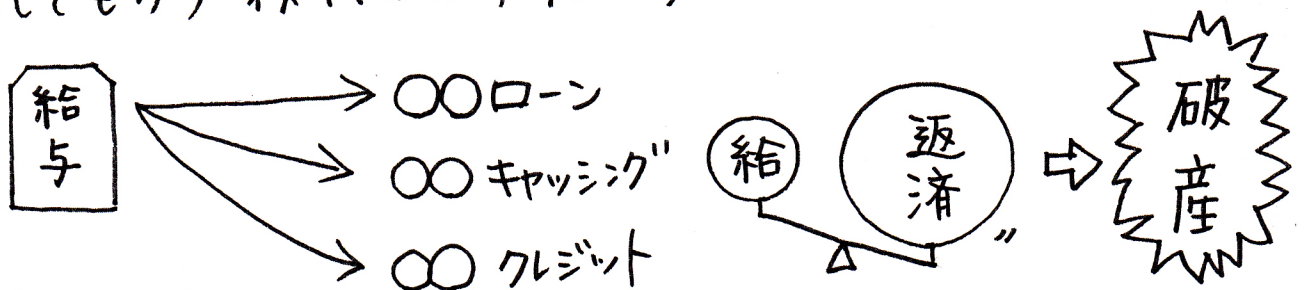 給与
○○ローン
○○キャッシング
○○クレジット
給
返済
破産